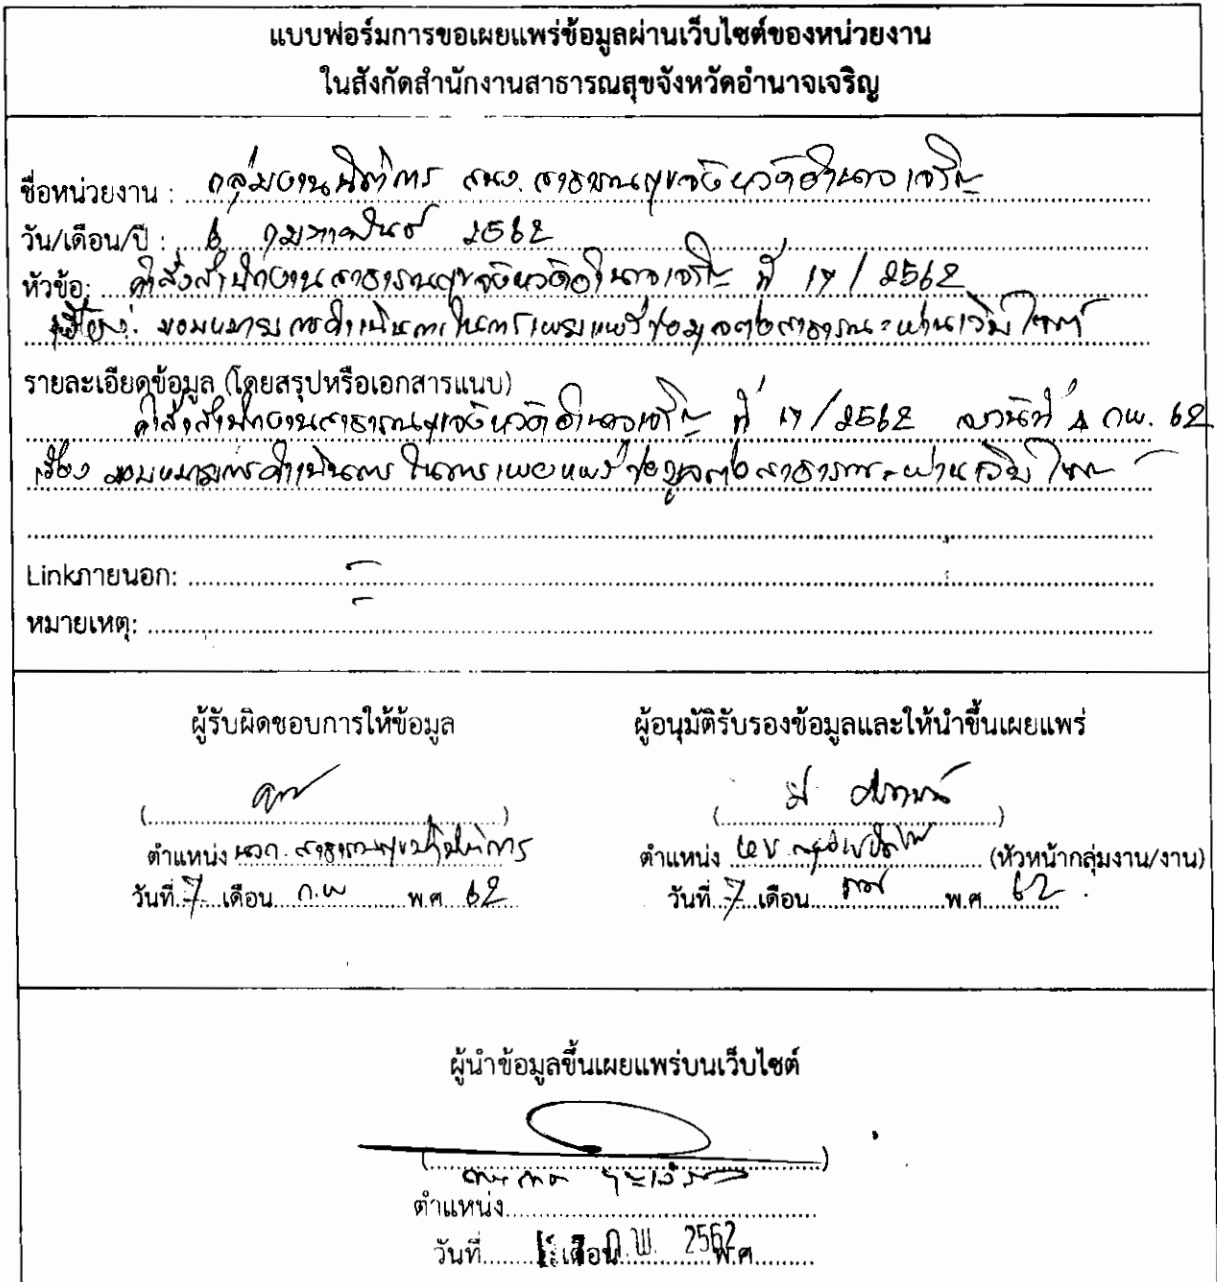 แบบฟอร์มการขอเผยแพร่ข้อมูลผ่านเว็บไซต์ของหน่วยงาน
ในสังกัดสำนักงานสาธารณสุขจังหวัดอำนาจเจริญ
ชื่อหน่วยงาน : กลุ่มงานนิติการ สนง. สาธารณสุขจังหวัดอำนาจเจริญ
วัน/เดือน/ปี : 6 กุมภาพันธ์ 2562
หัวข้อ: คำสั่งสำนักงานสาธารณสุขจังหวัดอำนาจเจริญ ที่ 17 / 2562
เรื่อง: มอบหมายการดำเนินการในการเผยแพร่ข้อมูลต่อสาธารณะผ่านเว็บไซต์
รายละเอียดข้อมูล (โดยสรุปหรือเอกสารแนบ)
คำสั่งสำนักงานสาธารณสุขจังหวัดอำนาจเจริญ ที่ 17 / 2562 ลงวันที่ 4 กพ. 62
เรื่อง มอบหมายการดำเนินการ ในการเผยแพร่ข้อมูลต่อสาธารณะผ่านเว็บไซต์
Linkภายนอก: -
หมายเหตุ: -
ผู้รับผิดชอบการให้ข้อมูล ผู้อนุมัติรับรองข้อมูลและให้นำขึ้นเผยแพร่
( ) ( )
ตำแหน่ง นวก. สาธารณสุขปฏิบัติการ ตำแหน่ง (หัวหน้ากลุ่มงาน/งาน)
วันที่ 7 เดือน ก.พ พ.ศ 62 วันที่ 7 เดือน กพ พ.ศ. 62
ผู้นำข้อมูลขึ้นเผยแพร่บนเว็บไซต์
( )
ตำแหน่ง
วันที่ เดือน ก.พ. 2562 พ.ศ.